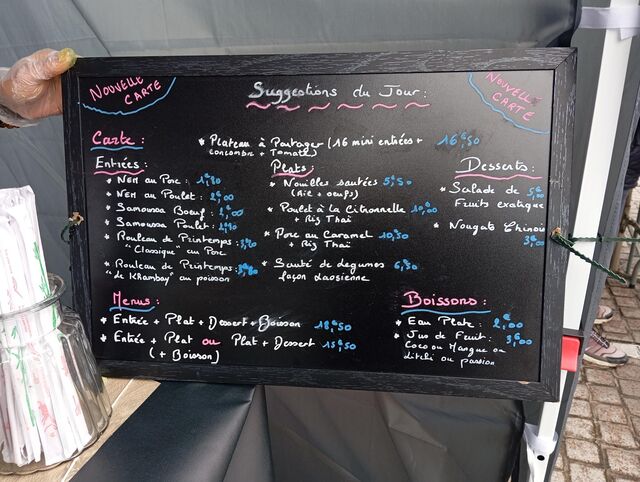 NOUVELLE
CARTE
Suggestions du Jour :
NOUVELLE
CARTE
Carte :
* Plateau à Partager (16 mini entrées + 16€,50
concombre + Tomate)
Entrées :
* Nem au Porc :
* Nem au Poulet : 2€,00
* Samoussa Boeuf : 2€,00
* Samoussa Poulet :
* Rouleau de Printemps :
"Classique" au Porc
* Rouleau de Printemps :
"de Khambay" au poisson
Plats :
* Nouilles sautées 5€,50
(Ail + oeufs)
* Poulet à la Citronnelle 10€,00
+ Riz Thaï
* Porc au Caramel 10€,50
+ Riz Thaï
* Sauté de légumes 6€,50
façon Laosienne
Desserts :
* Salade de 5€,00
Fruits exotique
* Nougats Chinois
3€,00
Menus :
* Entrée + Plat + Dessert + Boisson 18€,50
* Entrée + Plat ou Plat + Dessert 15€,50
(+ Boisson)
Boissons :
* Eau Plate : 2€,00
* Jus de Fruit : 3€,00
Coco ou Mangue ou
litchi ou passion